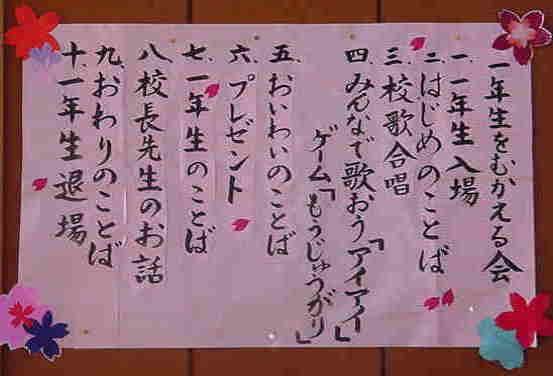 一年生をむかえる会
一、一年生入場
二、はじめのことば
三、校歌合唱
四、みんなで歌おう「アイアイ」
ゲーム「もうじゅうがり」
五、おいわいのことば
六、プレゼント
七、一年生のことば
八、校長先生のお話
九、おわりのことば
十、一年生退場